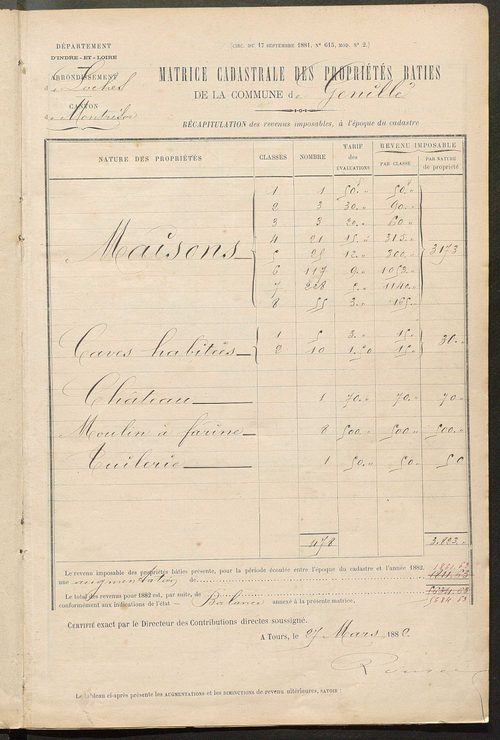 (CIRC. DU 17 SEPTEMBRE 1881, N° 615, MOD. N° 2.)
DÉPARTEMENT
D'INDRE-ET-LOIRE
ARRONDISSEMENT
de Loches
CANTON
de Montrésor
MATRICE CADASTRALE DES PROPRIÉTÉS BATIES
DE LA COMMUNE de Genillé
RÉCAPITULATION des revenus imposables, à l'époque du cadastre
NATURE DES PROPRIÉTÉS CLASSES NOMBRE TARIF des ÉVALUATIONS REVENU IMPOSABLE PAR CLASSE PAR NATURE de propriété
Maisons
1 1 50." 50."
2 3 30." 90."
3 3 20." 60."
4 21 15." 315."
5 25 12." 300." 3173
6 117 9." 1053."
7 228 5." 1140."
8 55 3." 165."
Caves habitées
1 5 3." 15." 30."
2 10 1.50 15."
Château 1 70." 70." 70."
Moulin à farine 8 500." 500."
Tuilerie 1 50." 50." 50
478 3.823."
Le revenu imposable des propriétés bâties présente, pour la période écoulée entre l'époque du cadastre et l'année 1882,
une augmentation de
Le total des revenus pour 1882 est, par suite, de
conformément aux indications de l'état Balance annexé à la présente matrice.
CERTIFIÉ exact par le Directeur des Contributions directes soussigné.
A Tours, le 27 Mars 188
Le tableau ci-après présente les AUGMENTATIONS et les DIMINUTIONS de revenu ultérieures, SAVOIR :